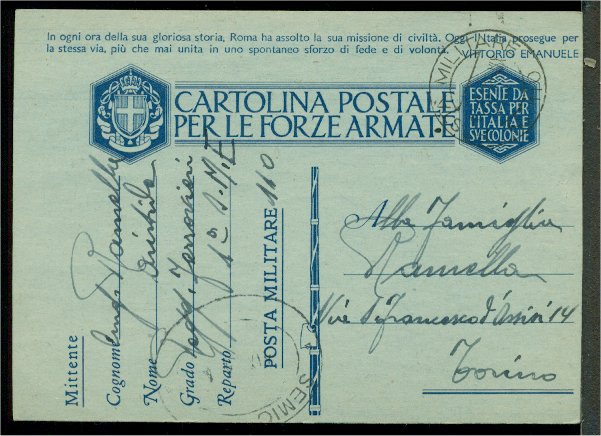 In ogni ora della sua gloriosa storia, Roma ha assolto la sua missione di civiltà. Oggi l'Italia prosegue per
la stessa via, più che mai unita in uno spontaneo sforzo di fede e di volontà. VITTORIO EMANUELE
CARTOLINA POSTAL
PER LE FORZE ARMAT
ESENTE DA
TASSA PER
L'ITALIA E
SVE COLONIE
MILITARE
Mittente
Cognome Ramella
Nome
Grado Ferrovieri
Reparto 1°
POSTA MILITARE 110
Alla Famiglia
Ramella
Via S. Francesco d'Assisi 14
Torino
SEMIC